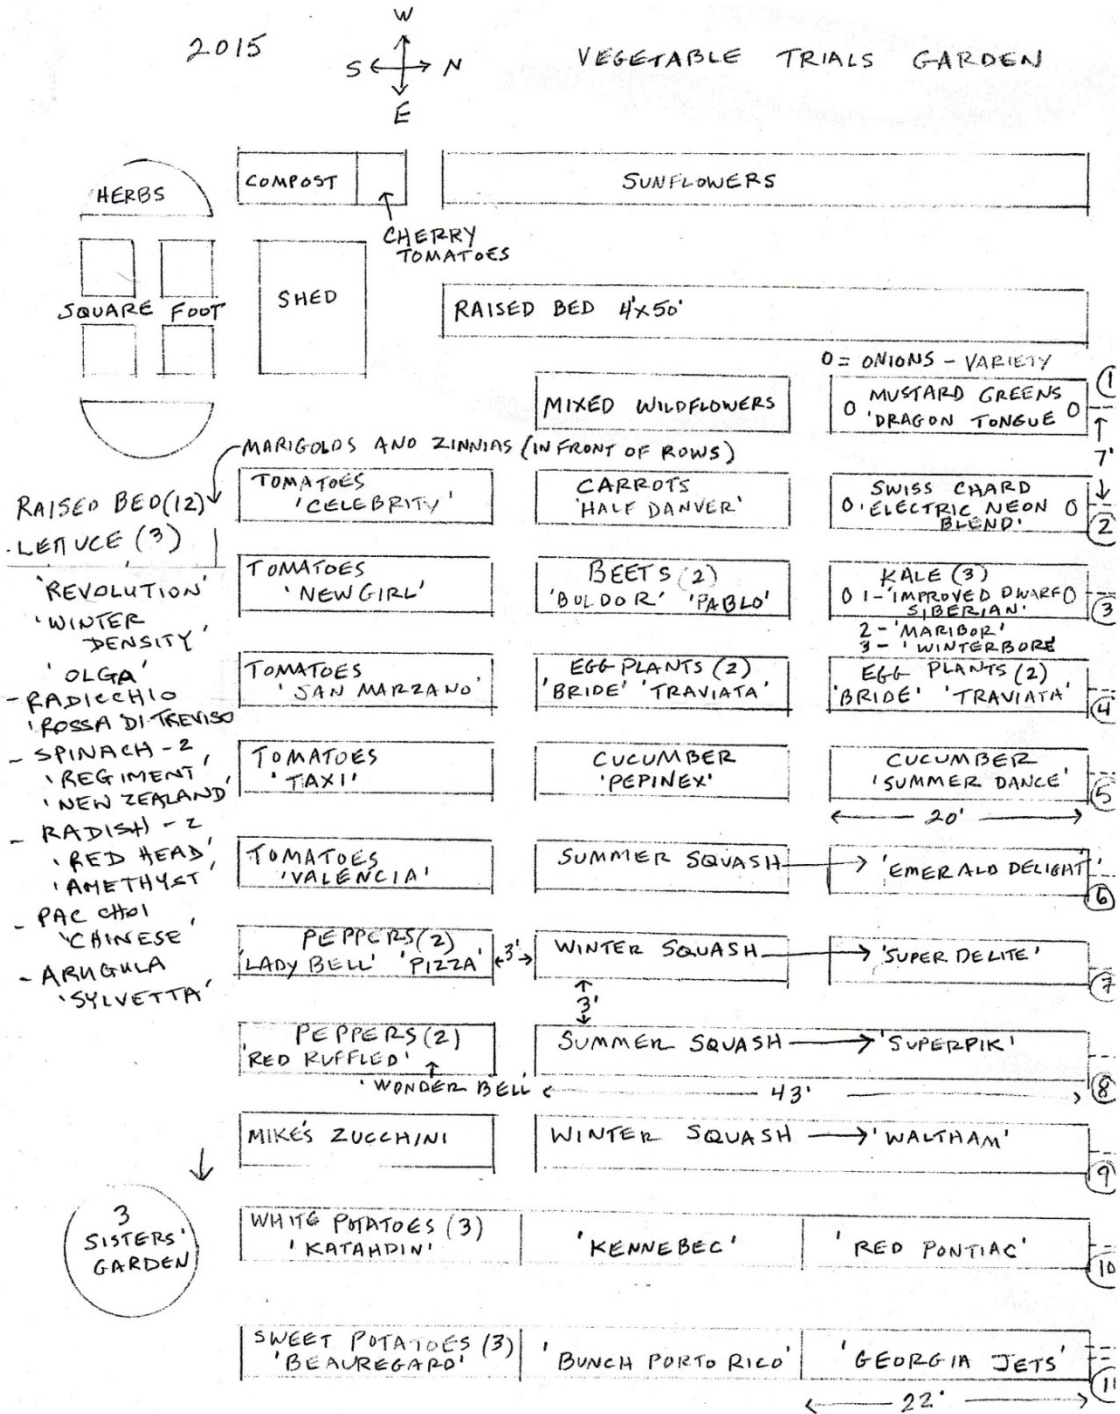 2015
W
S N
E
VEGETABLE TRIALS GARDEN
HERBS
COMPOST
SUNFLOWERS
CHERRY
TOMATOES
SQUARE FOOT
SHED
RAISED BED 4'x50'
O = ONIONS - VARIETY
MIXED WILDFLOWERS
MUSTARD GREENS
O 'DRAGON TONGUE O
1
7'
MARIGOLDS AND ZINNIAS (IN FRONT OF ROWS)
RAISED BED (12)
- LETTUCE (3)
'REVOLUTION'
'WINTER
DENSITY'
'OLGA'
- RADICCHIO
'ROSSA DI TREVISO
- SPINACH - 2
'REGIMENT'
'NEW ZEALAND'
- RADISH - 2
'RED HEAD'
'AMETHYST'
- PAC CHOI
'CHINESE'
- ARUGULA
'SYLVETTA'
TOMATOES
'CELEBRITY'
CARROTS
'HALF DANVER'
SWISS CHARD
O 'ELECTRIC NEON O
BLEND'
2
TOMATOES
'NEW GIRL'
BEETS (2)
'BOLDOR' 'PABLO'
KALE (3)
O 1-'IMPROVED DWARF O
SIBERIAN'
2-'MARIBOR'
3-'WINTERBORE
3
TOMATOES
'SAN MARZANO'
EGG PLANTS (2)
'BRIDE' 'TRAVIATA'
EGG PLANTS (2)
'BRIDE' 'TRAVIATA'
4
TOMATOES
'TAXI'
CUCUMBER
'PEPINEX'
CUCUMBER
'SUMMER DANCE'
20'
5
TOMATOES
'VALENCIA'
SUMMER SQUASH 'EMERALD DELIGHT'
6
PEPPERS (2)
'LADY BELL' 'PIZZA'
3'
WINTER SQUASH 'SUPER DELITE'
7
3'
PEPPERS (2)
'RED RUFFLED'
'WONDER BELL
SUMMER SQUASH 'SUPERPIK'
43'
8
MIKE'S ZUCCHINI
WINTER SQUASH 'WALTHAM'
9
3
SISTERS'
GARDEN
WHITE POTATOES (3)
'KATAHDIN'
'KENNEBEC'
'RED PONTIAC'
10
SWEET POTATOES (3)
'BEAUREGARD'
'BUNCH PORTO RICO'
'GEORGIA JETS'
11
22'